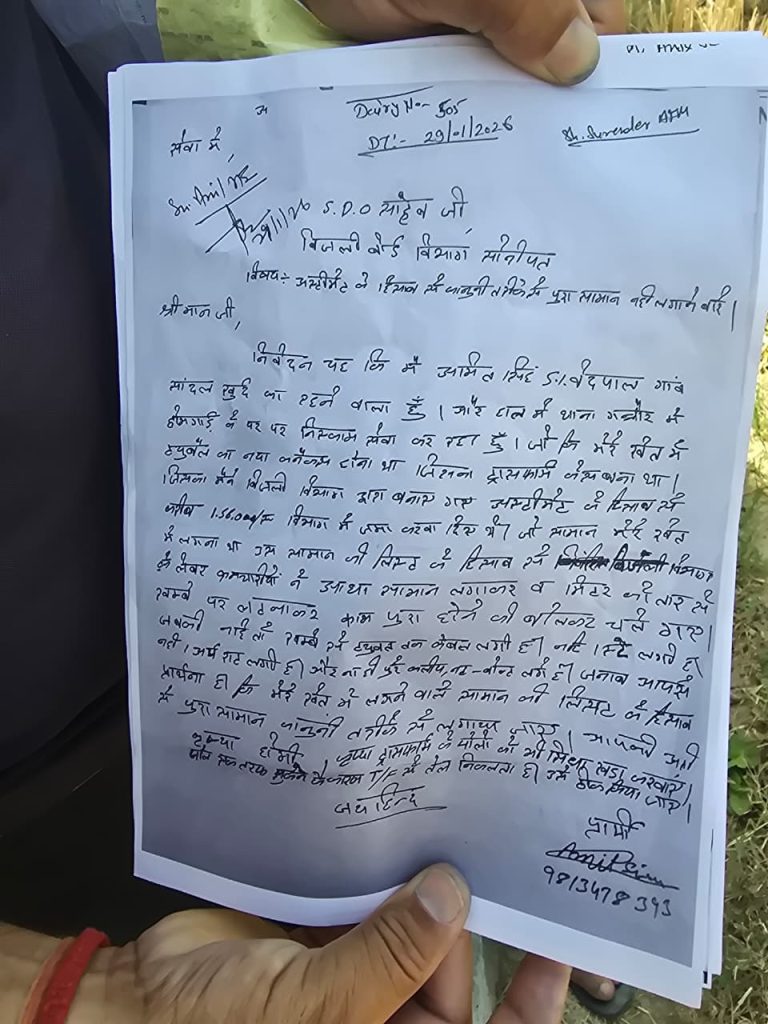 Dairy No- 505
DT:- 29/01/2026
Sh. Surender AFM
सेवा में,
S.D.O साहेब जी,
बिजली बोर्ड विभाग सोनीपत
विषय:- अस्टीमेट के हिसाब से कानुनी तरीके से पुरा सामान नही लगाने बारे।
श्री मान जी,
निवेदन यह कि मैं अमित सिंह S/० वेदपाल गांव
सांदल खुर्द का रहने वाला हुँ। और हाल में थाना गन्नौर में
होमगार्ड के पद पर निस्काम सेवा कर रहा हुँ। जो कि मेरे खेत में
ट्युबवैल का नया कनैक्सन होना था जिसका ट्रासफार्म केस बना था।
जिसका मैने बिजली विभाग द्वारा बनाए गए अस्टीमेट के हिसाब से
करीब 156000/= विभाग में जमा करवा दिए थे। जो सामान मेरे खेत
में लगना था उस सामान की लिस्ट के हिसाब से बिजली विभाग
के लेबर कर्मचारीयो ने आधा सामान लगाकर व मिटर को तार से
खम्बे पर लटकाकर काम पुरा होने की बोलकर चले गए।
जबकी नाहि तो खम्बे से ट्युबल तक केबल लगी है। नाहि स्टे लगी है
नही अर्थ राट लगी है। और ना ही पुरे कलीप, नट-बोल्ट लगे है। जनाब आपसे
प्रार्थना है कि मेरे खेत में लगने वाले सामान की लिस्ट के हिसाब
से पुरा सामान कानुनी तरीके से लगाया जाए। आपकी अती
कृप्या होगी। कृप्या ट्रासफार्म के पोलो को भी सिधा खड़ा करवाए।
पोल एक तरफ झुकने के कारण T/F से तेल निकलता है। उसे ठीक किया जाए।
जय हिन्द
प्रार्थी
Amit Singh
9813478393